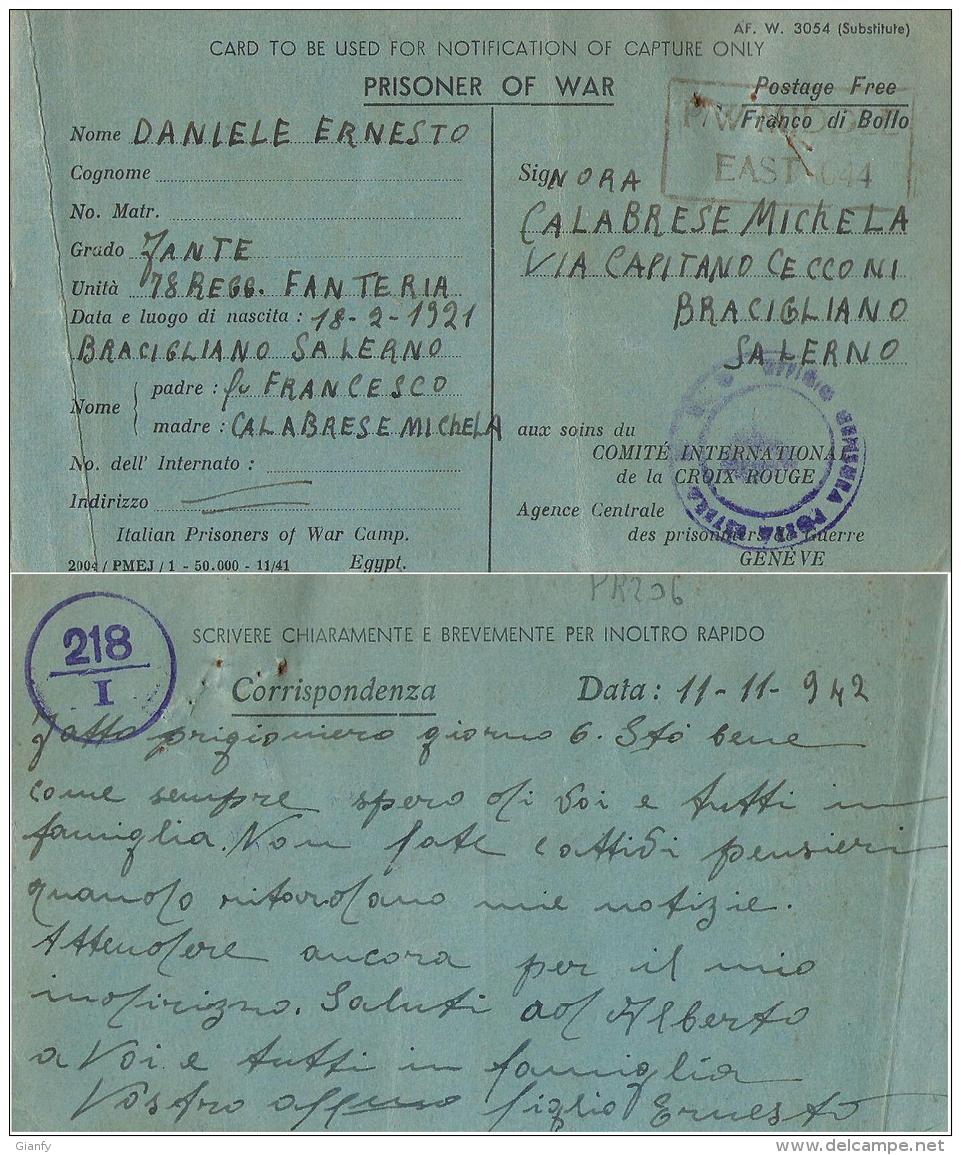 AF. W. 3054 (Substitute)
CARD TO BE USED FOR NOTIFICATION OF CAPTURE ONLY
PRISONER OF WAR
Postage Free
Franco di Bollo
P/W MIDDLE
EAST 044
Nome DANIELE ERNESTO
Cognome
No. Matr.
Grado FANTE
Unità 78 REGG. FANTERIA
Data e luogo di nascita : 18-2-1921
BRACIGLIANO SALERNO
Nome
padre : fu FRANCESCO
madre : CALABRESE MIChELA
No. dell' Internato :
Indirizzo
Italian Prisoners of War Camp.
2004 / PMEJ / 1 - 50.000 - 11/41 Egypt.
SigNORA
CALABRESE MIChELA
VIA CAPITANO CECCONI
BRACIGLIANO
SALERNO
aux soins du
COMITÉ INTERNATIONAL
de la CROIX ROUGE
Agence Centrale
des prisonniers de Guerre
GENÈVE
UFFICIO CENSURA POSTA ESTERA
PR206
218
I
SCRIVERE CHIARAMENTE E BREVEMENTE PER INOLTRO RAPIDO
Corrispondenza Data : 11-11-942
Fatto prigioniero giorno 6. Stó bene
come sempre spero di voi e tutti in
famiglia. Non fate cattivi pensieri
quando ritardano mie notizie.
Attendere ancora per il mio
indirizzo. Saluti ad Alberto
a Voi e tutti in famiglia
Vostro affmo figlio Ernesto
Gianfy
delcampe.net